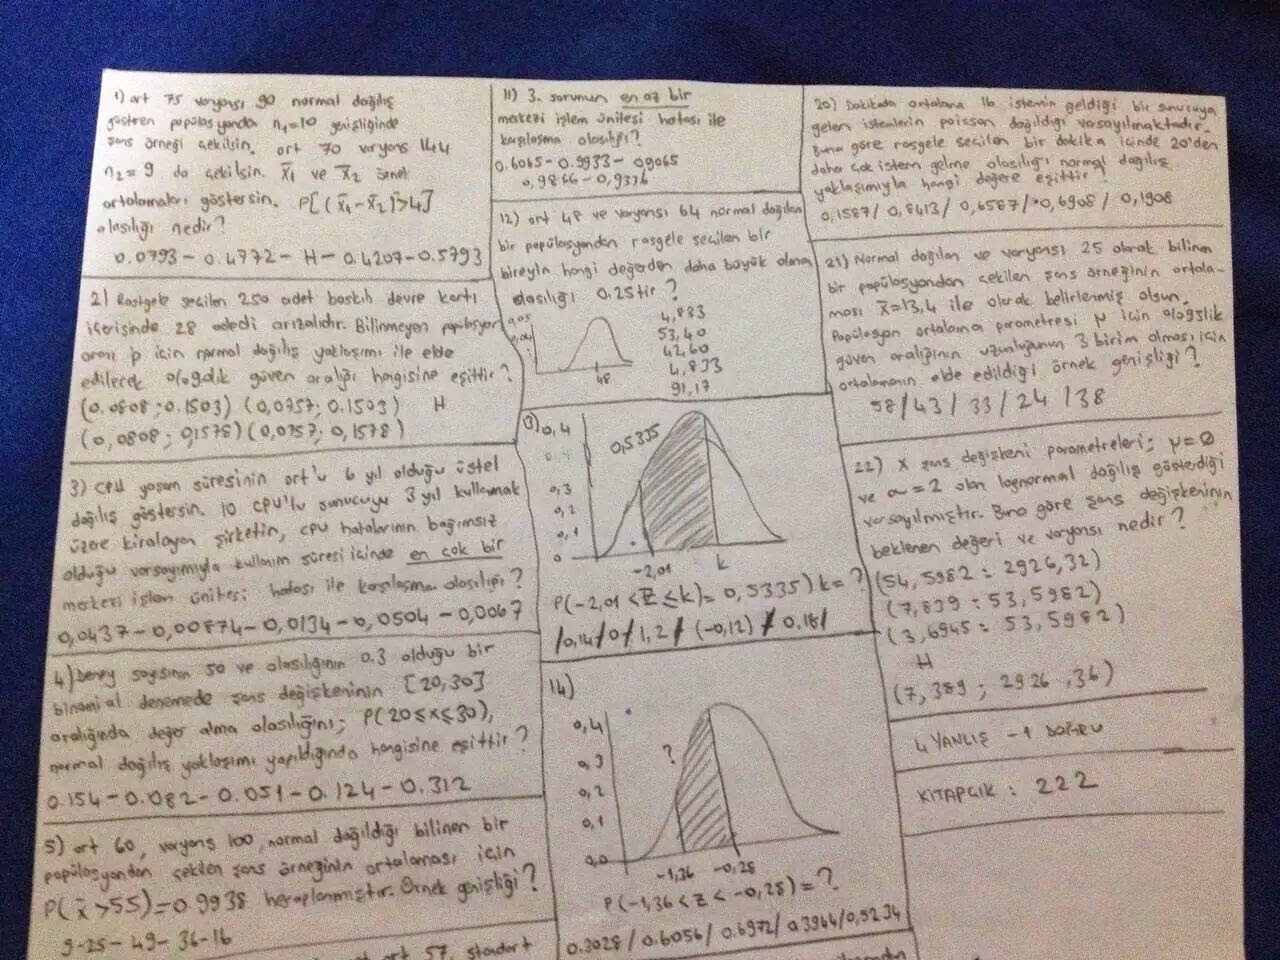 1) ort 75 varyansı 90 normal dağılış
gösteren popülasyondan n1=10 genişliğinde
şans örneği çekilsin. ort 70 varyans 144
n2=9 da çekilsin. x̄1 ve x̄2 örnek
ortalamaları göstersin. P[(x̄1-x̄2)>4]
olasılığı nedir?
0.0793 - 0.4772 - H - 0.4207 - 0.5793
2) Rastgele seçilen 250 adet baskılı devre kartı
içerisinde 28 adedi arızalıdır. Bilinmeyen popülasyon
oranı p için normal dağılış yaklaşımı ile elde
edilecek güven aralığı hangisine eşittir?
(0.0808; 0.1503) (0,0757; 0.1503) H
(0,0808; 0,1578) (0,0757; 0,1578)
3) CPU yaşam süresinin ort'u 6 yıl olduğu üstel
dağılış göstersin. 10 CPU'lu sunucuyu 3 yıl kullanmak
üzere kiralayan şirketin, cpu hatalarının bağımsız
olduğu varsayımıyla kullanım süresi içinde en çok bir
merkezi işlem ünitesi hatası ile karşılaşma olasılığı?
0,0437 - 0,00874 - 0,0134 - 0,0504 - 0,0067
4) Deney sayısının 50 ve olasılığının 0.3 olduğu bir
binomial denemede şans değişkeninin [20,30]
aralığında değer alma olasılığını; P(20≤x≤30),
normal dağılış yaklaşımı yapıldığında hangisine eşittir?
0.154 - 0.082 - 0.051 - 0.124 - 0.312
5) ort 60, varyans 100, normal dağıldığı bilinen bir
popülasyondan çekilen şans örneğinin ortalaması için
P(x̄>55)=0.9938 hesaplanmıştır. Örnek genişliği?
9-25-49-36-16
ort 57, standart
11) 3. sorunun en az bir
merkezi işlem ünitesi hatası ile
karşılaşma olasılığı?
0.6065 - 0.9933 - 09065
0,9866 - 0,9336
12) ort 48 ve varyansı 64 normal dağılan
bir popülasyondan rasgele seçilen bir
bireyin hangi değerden daha büyük olma
olasılığı 0.25tir?
0,05
4,833
53,40
42,60
4,833
91,17
48
13)
0,4
0,5335
0,3
0,2
0,1
0
-2,01
k
P(-2,01<Z≤k)=0,5335) k=?
/0,14/0/1,2/(-0,12)/0,18/
14)
0,4
?
0,3
0,2
0,1
0,0
-1,36
-0,28
P(-1,36<Z<-0,28)=?
0.3028/0.6056/0.6972/0.3944/0,5234
20) Dakikada ortalama 16 istemin geldiği bir sunucuya
gelen istemlerin poisson dağıldığı varsayılmaktadır.
Buna göre rasgele seçilen bir dakika içinde 20'den
daha çok istem gelme olasılığı normal dağılış
yaklaşımıyla hangi değere eşittir?
0,1587/ 0,8413/ 0,6587/ 0,6908/ 0,1908
21) Normal dağılan ve varyansı 25 olarak bilinen
bir popülasyondan çekilen şans örneğinin ortala-
ması x̄=13,4 ile olarak belirlenmiş olsun.
Popülasyon ortalama parametresi μ için
güven aralığının uzunluğunun 3 birim olması için
ortalamanın elde edildiği örnek genişliği?
58/43/33/24/38
22) X şans değişkeni parametreleri; μ=0
ve =2 olan lognormal dağılış gösterdiği
varsayılmıştır. Buna göre şans değişkeninin
beklenen değeri ve varyansı nedir?
(54,5982: 2926,32)
(7,839: 53,5982)
(3,6945: 53,5982)
H
(7,389; 2926,36)
4 YANLIŞ - 1 DOĞRU
KİTAPÇIK: 222